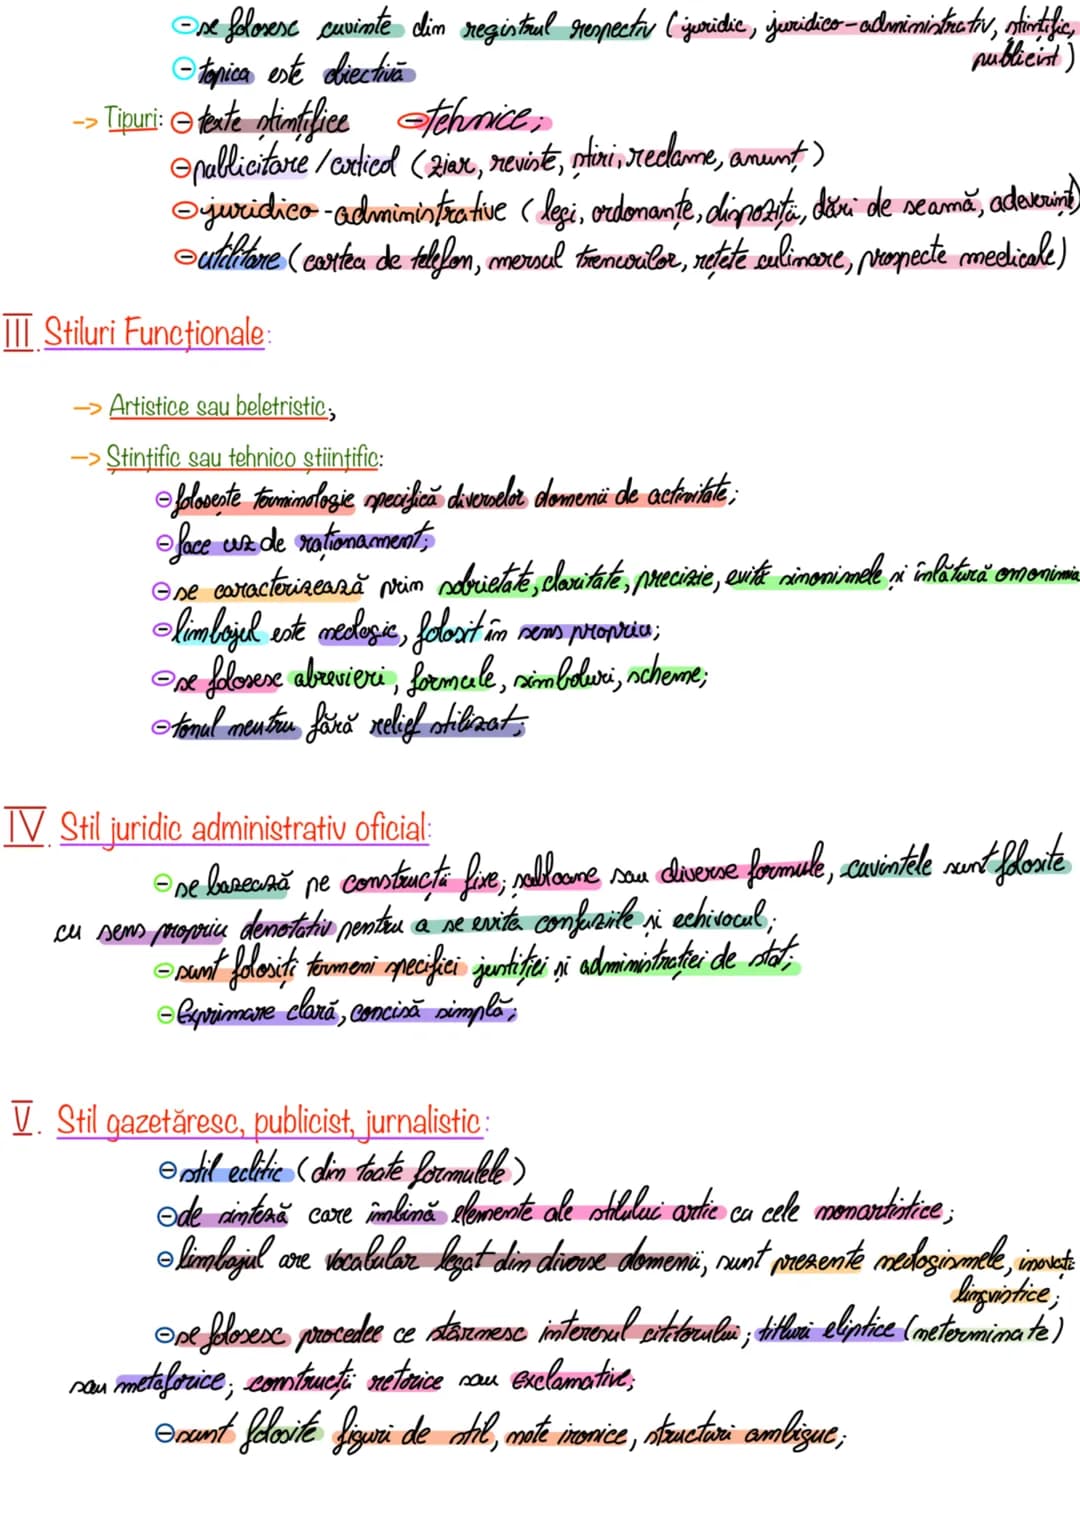 ⊖ se folosesc cuvinte din registrul respectiv (juridic, juridico-administrativ, științific,
publicist)
⊖ topica este obiectivă
-> Tipuri: ⊖ texte științifice ⊖ tehnice;
⊖ publicitare / articol (ziar, reviste, știri, reclame, anunț)
⊖ juridico-administrative (legi, ordonanțe, dispoziții, dări de seamă, adeverințe)
⊖ utilitare (cartea de telefon, mersul trenurilor, rețete culinare, prospecte medicale)
III. Stiluri Funcționale:
-> Artistice sau beletristic;
-> Științific sau tehnico științific:
⊖ folosește terminologie specifică diverselor domenii de activitate;
⊖ face uz de raționament;
⊖ se caracterizează prin sobrietate, claritate, precizie, evită sinonimele și înlătură omonimia
⊖ limbajul este neologic, folosit în sens propriu;
⊖ se folosesc abrevieri, formule, simboluri, scheme;
⊖ tonul neutru fără relief stilizat;
IV. Stil juridic administrativ oficial:
⊖ se bazează pe construcții fixe; șabloane sau diverse formule, cuvintele sunt folosite
cu sens propriu denotativ pentru a se evita confuziile și echivocul;
⊖ sunt folosiți termeni specifici justiției și administrației de stat;
⊖ Exprimare clară, concisă simplă;
V. Stil gazetăresc, publicist, jurnalistic:
⊖ stil eclitic (din toate formulele)
⊖ de sinteză care îmbină elemente ale stilului artic cu cele nonartistice;
⊖ limbajul are vocabular legat din diverse domenii, sunt prezente neologismele, inovații
lingvistice;
⊖ se folosesc procedee ce stârnesc interesul cititorului; titluri eliptice (neterminate)
sau metaforice; construcții retorice sau exclamative;
⊖ sunt folosite figuri de stil, note ironice, structuri ambigue;